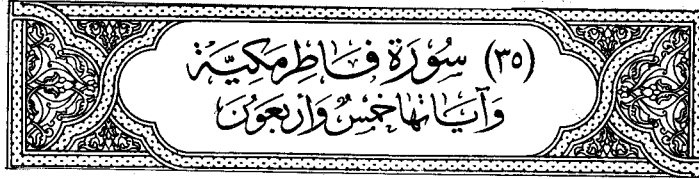 (٣٥) سُورَة فَاطِر مَكِيَّة
وَآيَاتهَا خَمْسٌ وَأَرْبَعُون